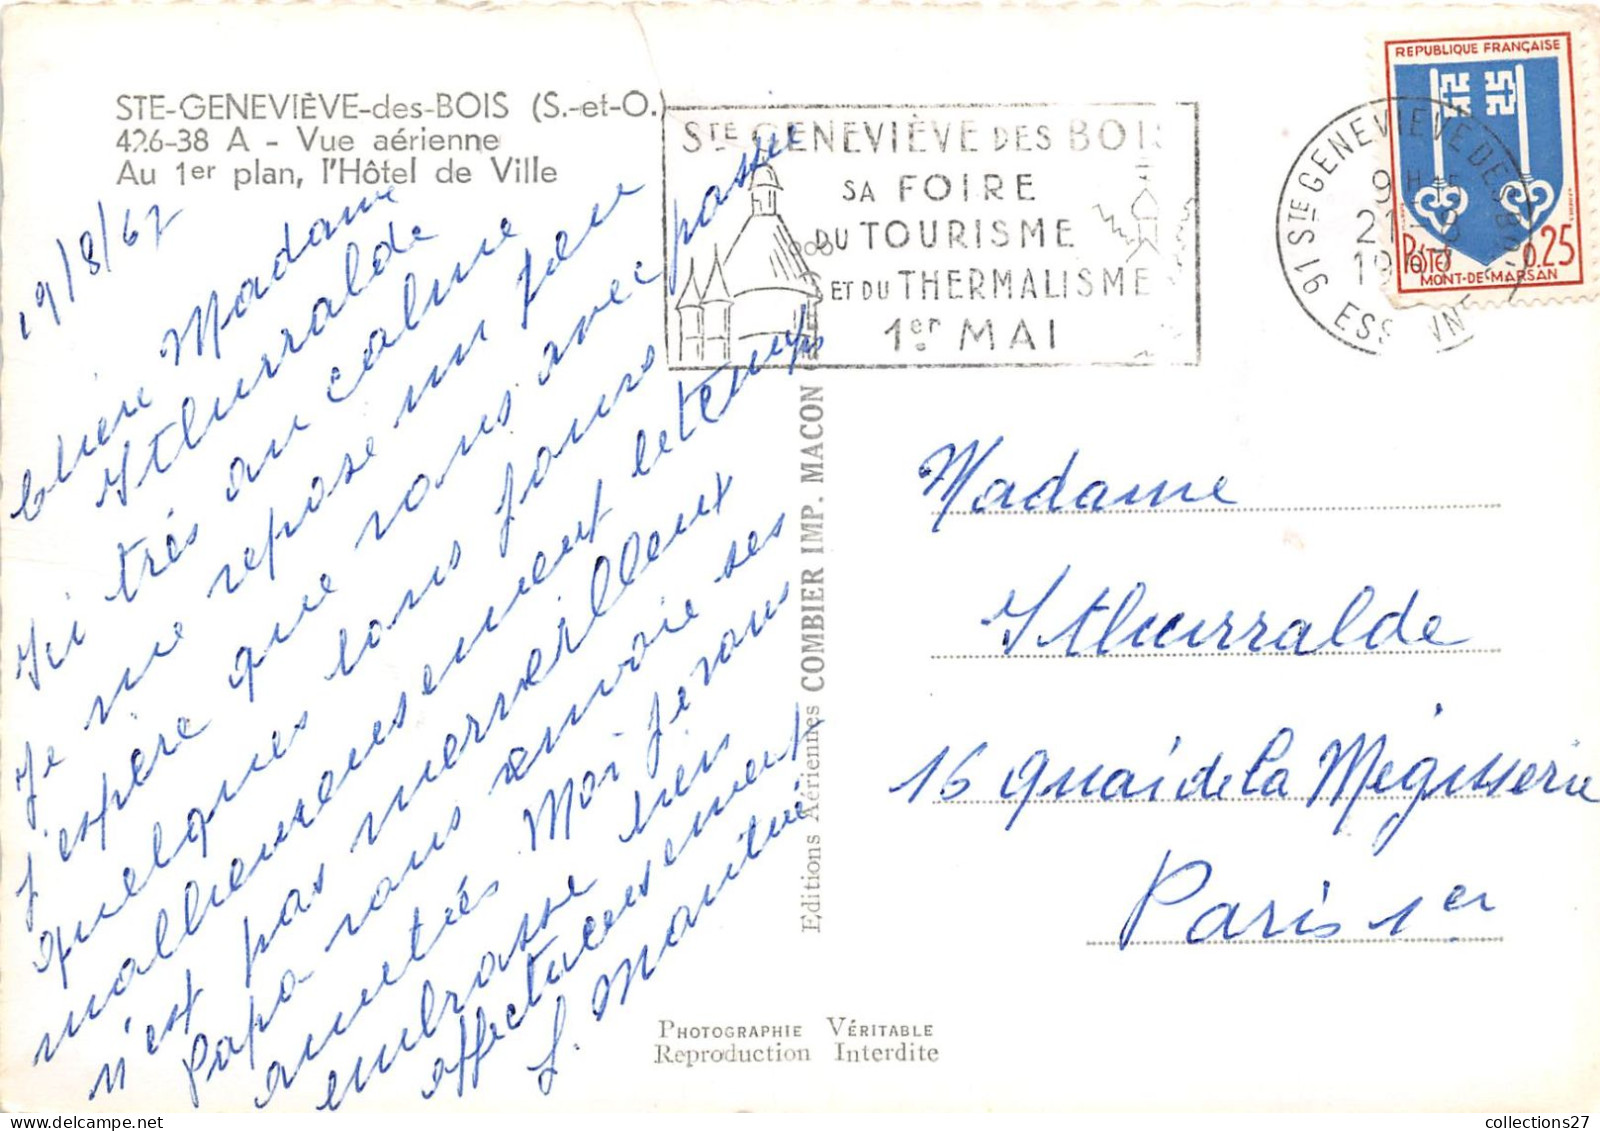 STE-GENEVIÈVE-des-BOIS (S.-et-O.)
426-38 A - Vue aérienne
Au 1er plan, l'Hôtel de Ville
19/8/67
Chère Madame
Ithurralde
Ici très au calme
Je me repose un peu
J'espère que vous avez passé
quelques bons jours
malheureusement le temps
n'est pas merveilleux
Papa vous envoie ses
amitiés Moi je vous
embrasse bien
affectueusement
STE GENEVIÈVE DES BOIS
SA FOIRE
DU TOURISME
ET DU THERMALISME
1er MAI
91 STE GENEVIEVE DES BOIS
9H
21-8
19
ESSONNE
REPUBLIQUE FRANÇAISE
POSTES 0,25
MONT-DE-MARSAN
Editions Aériennes COMBIER IMP. MACON
Madame
Ithurralde
16 quai de la Mégisserie
Paris 1er
PHOTOGRAPHIE VÉRITABLE
Reproduction Interdite
collections27